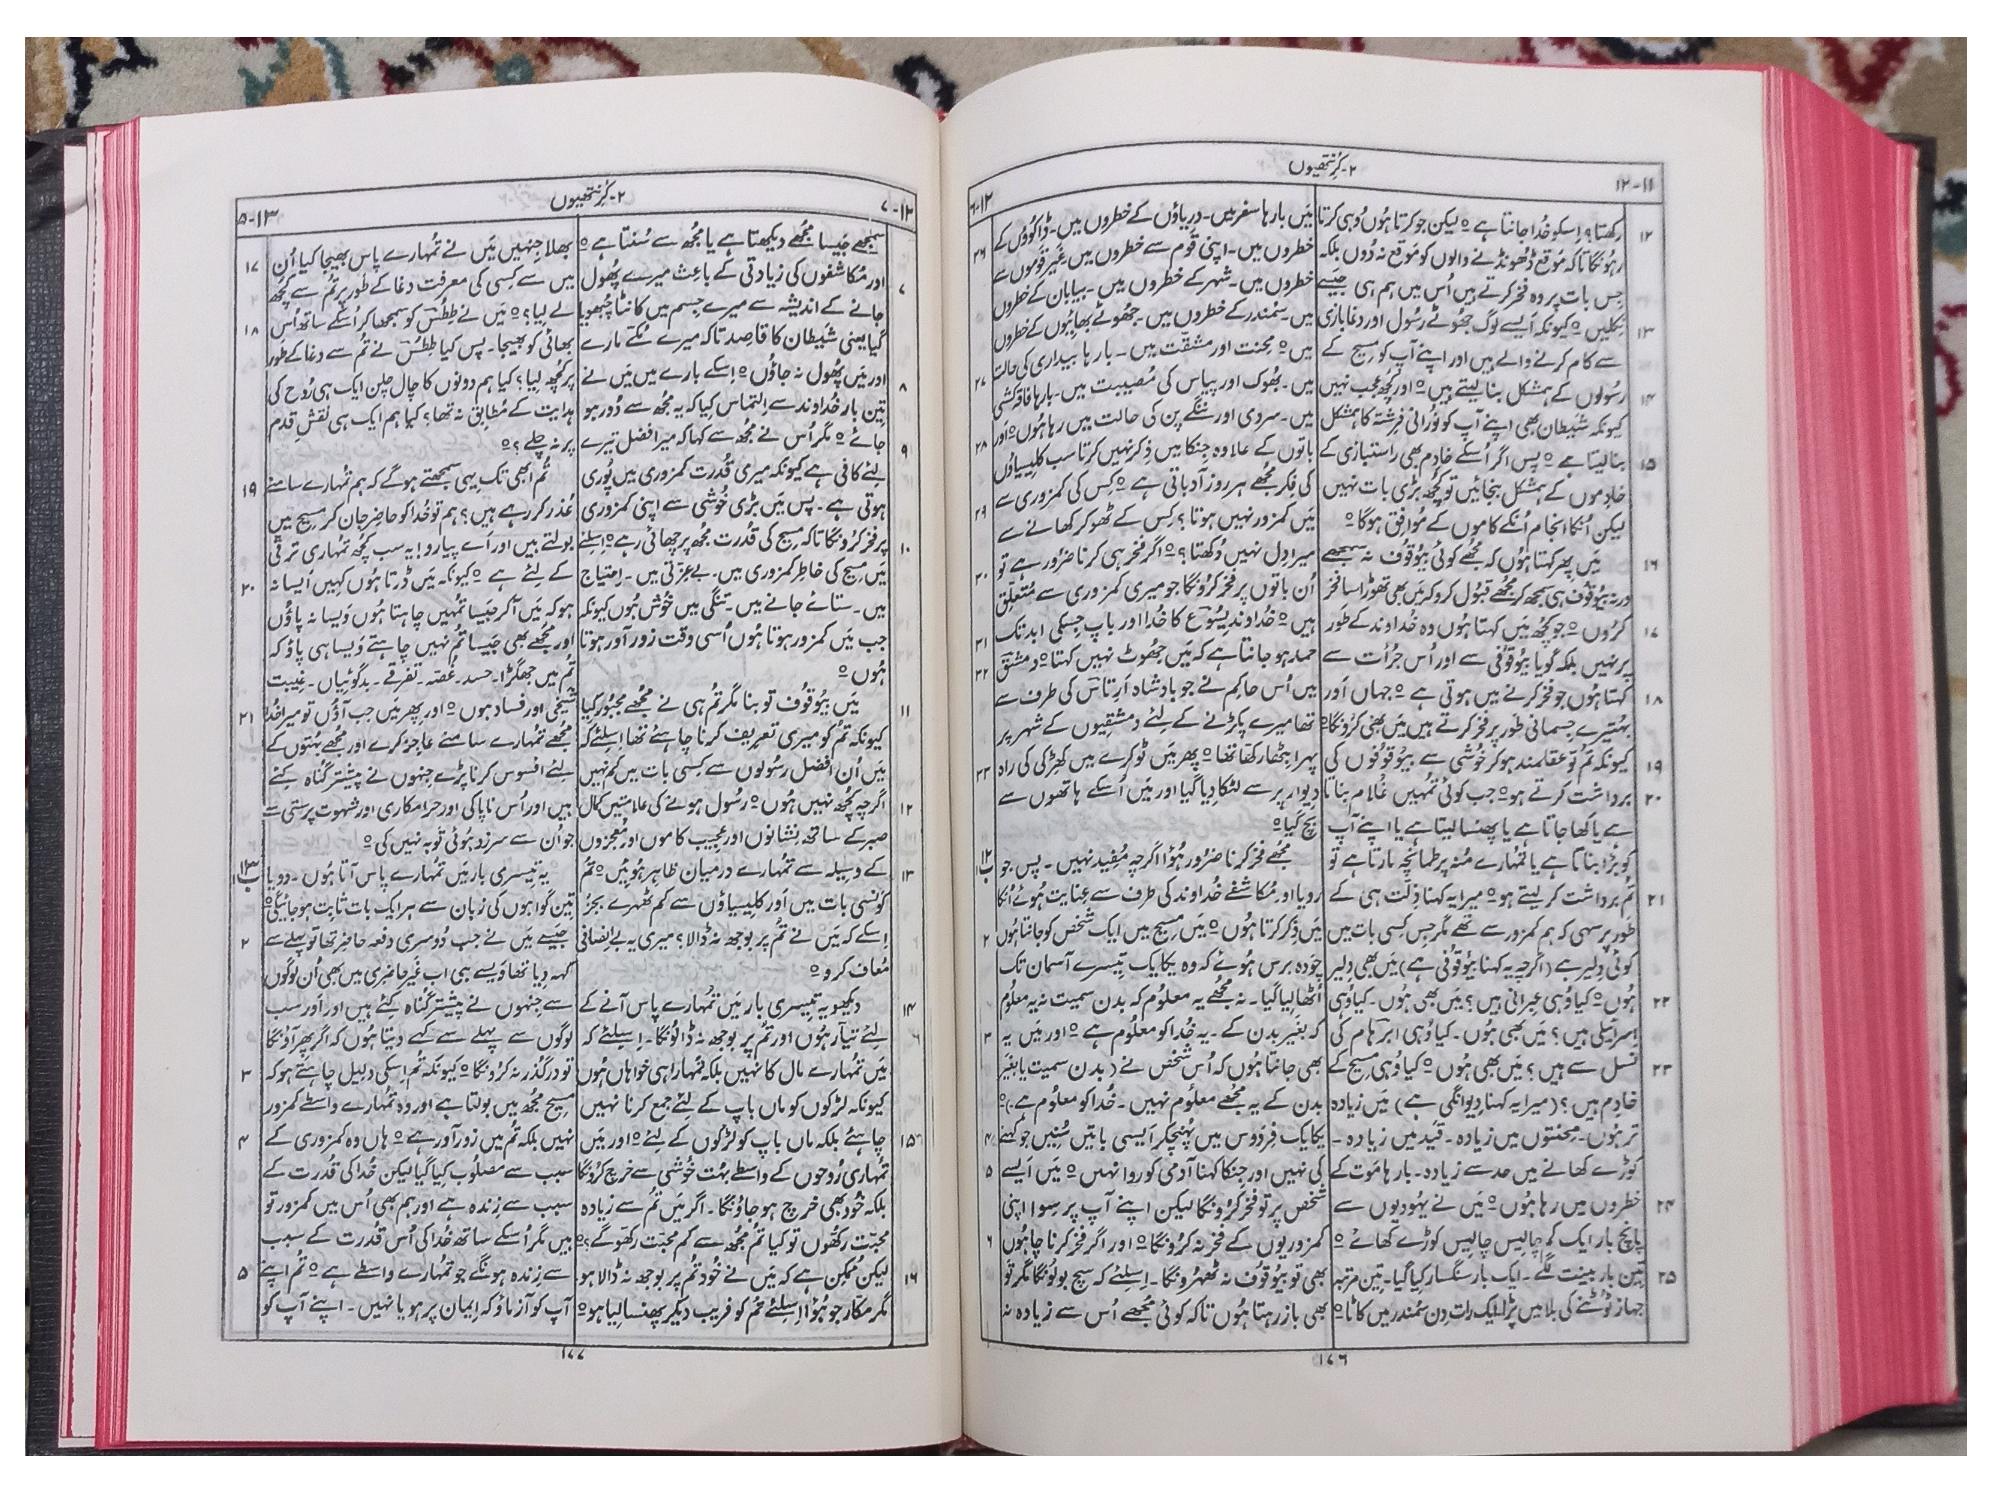 ۱۱-۱۲
۲-کُرِنتھیوں
۱۲-۶
۱۲ رکھتا؟ اِسکو خُدا جانتا ہے ο لیکن جو کرتا ہُوں وُہی کرتا
رہُونگا تاکہ مَوقع ڈھونڈنے والوں کو مَوقع نہ دُوں بلکہ
جِس بات پر وہ فخر کرتے ہیں اُس میں ہم ہی جَیسے
۱۳ نِکلیں ο کیونکہ اَیسے لوگ جھُوٹے رسُول اور دغابازی
سے کام کرنے والے ہیں اور اپنے آپ کو مسیح کے
۱۴ رسُولوں کے ہمشکل بنا لیتے ہیں ο اور کُچھ عجب نہیں
کیونکہ شَیطان بھی اپنے آپ کو نُورانی فِرشتہ کا ہمشکل
۱۵ بنا لیتا ہے ο پس اگر اُسکے خادِم بھی راستبازی کے
خادِموں کے ہمشکل بنجائیں تو کُچھ بڑی بات نہیں
لیکن اُنکا انجام اُنکے کاموں کے مُوافِق ہوگا ο
۱۶ مَیں پھر کہتا ہُوں کہ مُجھے کوئی بیوُقُوف نہ سمجھے
ورنہ بیوُقُوف ہی سمجھ کر مُجھے قبُول کرو کہ مَیں بھی تھوڑا سا فخر
۱۷ کرُوں ο جو کُچھ مَیں کہتا ہُوں وہ خُداوند کے طَور
پر نہیں بلکہ گویا بیوُقُوفی سے اور اُس جُرأت سے
۱۸ کہتا ہُوں جو فخر کرنے میں ہوتی ہے ο جہاں اَور
بہتیرے جِسمانی طَور پر فخر کرتے ہیں مَیں بھی کرُونگا ο
۱۹ کیونکہ تُم تو عقلمند ہو کر خُوشی سے بیوُقُوفوں کی
۲۰ برداشت کرتے ہو ο جب کوئی تُمہیں غُلام بناتا
ہے یا کھا جاتا ہے یا پھنسا لیتا ہے یا اپنے آپ
کو بڑا بناتا ہے یا تُمہارے مُنہ پر طمانچہ مارتا ہے تو
۲۱ تُم برداشت کر لیتے ہو ο میرا یہ کہنا ذِلّت ہی کے
طَور پر سہی کہ ہم کمزور سے تھے مگر جِس کِسی بات میں
کوئی دلیر ہے (اگرچہ یہ کہنا بیوُقُوفی ہے) مَیں بھی دلیر
۲۲ ہُوں ο کیا وُہی عِبرانی ہیں؟ مَیں بھی ہُوں ۔ کیا وُہی
اِسرائیلی ہیں؟ مَیں بھی ہُوں ۔ کیا وُہی ابرہام کی
۲۳ نسل سے ہیں؟ مَیں بھی ہُوں ο کیا وُہی مسیح کے
خادِم ہیں؟ (میرا یہ کہنا دِیوانگی ہے) مَیں زیادہ
تر ہُوں ۔ مِحنتوں میں زیادہ ۔ قَید میں زیادہ ۔
کوڑے کھانے میں حد سے زیادہ ۔ بارہا مَوت کے
۲۴ خطروں میں رہا ہُوں ο مَیں نے یہُودیوں سے
پانچ بار ایک کم چالِیس چالِیس کوڑے کھائے ο
۲۵ تین بار بینت لگے ۔ ایک بار سنگسار کیا گیا ۔ تین مرتبہ
جہاز ٹُوٹنے کی بلا میں پڑا ایک رات دِن سمُندر میں کاٹا ο
۲۶ مَیں بارہا سفر میں ۔ دریاؤں کے خطروں میں ۔ ڈاکُوؤں کے
خطروں میں ۔ اپنی قَوم سے خطروں میں ۔ غَیر قَوموں سے
خطروں میں ۔ شہر کے خطروں میں ۔ بیابان کے خطروں
میں ۔ سمُندر کے خطروں میں ۔ جھُوٹے بھائیوں کے خطروں
۲۷ میں ο مِحنت اور مشقّت میں ۔ بارہا بیداری کی حالت
میں ۔ بھُوک اور پیاس کی مُصیبت میں ۔ بارہا فاقہ کشی
۲۸ میں ۔ سردی اور ننگے پن کی حالت میں رہا ہُوں ο اور
باتوں کے علاوہ جِنکا میں ذِکر نہیں کرتا سب کلیسیاؤں
۲۹ کی فِکر مُجھے ہر روز آدباتی ہے ο کِس کی کمزوری سے
مَیں کمزور نہیں ہوتا؟ کِس کے ٹھوکر کھانے سے
۳۰ میرا دِل نہیں دُکھتا؟ ο اگر فخر ہی کرنا ضرُور ہے تو
اُن باتوں پر فخر کرُونگا جو میری کمزوری سے مُتعلِّق
۳۱ ہیں ο خُداوند یِسُوع کا خُدا اور باپ جِسکی ابد تک
۳۲ حمد ہو جانتا ہے کہ مَیں جھُوٹ نہیں کہتا ο دمشق
میں اُس حاکِم نے جو بادشاہ ارِتاس کی طرف سے
تھا میرے پکڑنے کے لِئے دمشقیوں کے شہر پر
۳۳ پہرا بِٹھا رکھا تھا ο پھر مَیں ٹوکرے میں کھِڑکی کی راہ
دِیوار پر سے لٹکا دِیا گیا اور مَیں اُسکے ہاتھوں سے
بچ گیا ο
۱۲ب مُجھے فخر کرنا ضرُور ہُؤا اگرچہ مُفید نہیں ۔ پس جو
رویا اور مُکاشفے خُداوند کی طرف سے عِنایت ہُوئے اُنکا
۲ مَیں ذِکر کرتا ہُوں ο مَیں مسیح میں ایک شخص کو جانتا ہُوں
چَودہ برس ہُوئے کہ وہ یکایک تِیسرے آسمان تک
اُٹھا لِیا گیا ۔ نہ مُجھے یہ معلُوم کہ بدن سمیت نہ یہ معلُوم
۳ کہ بغَیر بدن کے ۔ یہ خُدا کو معلُوم ہے ο اور مَیں یہ
بھی جانتا ہُوں کہ اُس شخص نے (بدن سمیت یا بغَیر
بدن کے یہ مُجھے معلُوم نہیں ۔ خُدا کو معلُوم ہے) ο
۴ یکایک فِردَوس میں پہُنچکر اَیسی باتیں سُنیں جو کہنے
۵ کی نہیں اور جِنکا کہنا آدمی کو روا نہیں ο مَیں اَیسے
شخص پر تو فخر کرُونگا لیکن اپنے آپ پر سِوا اپنی
۶ کمزوریوں کے فخر نہ کرُونگا ο اور اگر فخر کرنا چاہُوں
بھی تو بیوُقُوف نہ ٹھہرُونگا ۔ اِسلِئے کہ سچ بولُونگا مگر تَو
بھی باز رہتا ہُوں تاکہ کوئی مُجھے اُس سے زیادہ نہ
۱۷۶
۱۲-۷
۲-کُرِنتھیوں
۱۳-۵
سمجھے جَیسا مُجھے دیکھتا ہے یا مُجھ سے سُنتا ہے ο
۷ اور مُکاشفوں کی زیادتی کے باعِث میرے پھُول
جانے کے اندیشہ سے میرے جِسم میں کانٹا چُبھویا
گیا یعنی شَیطان کا قاصِد تاکہ میرے مُکّے مارے
۸ اور مَیں پھُول نہ جاؤُں ο اِسکے بارے میں مَیں نے
تین بار خُداوند سے اِلتماس کیا کہ یہ مُجھ سے دُور ہو
۹ جائے ο مگر اُس نے مُجھ سے کہا کہ میرا فضل تیرے
لِئے کافی ہے کیونکہ میری قُدرت کمزوری میں پُوری
ہوتی ہے ۔ پس مَیں بڑی خُوشی سے اپنی کمزوری
۱۰ پر فخر کرُونگا تاکہ مسیح کی قُدرت مُجھ پر چھائی رہے ο اِسلِئے
مَیں مسیح کی خاطِر کمزوری میں ۔ بے عِزّتی میں ۔ اِحتیاج
میں ۔ ستائے جانے میں ۔ تنگی میں خُوش ہُوں کیونکہ
جب مَیں کمزور ہوتا ہُوں اُسی وقت زورآور ہوتا
ہُوں ο
۱۱ مَیں بیوُقُوف تو بنا مگر تُم ہی نے مُجھے مجبُور کِیا
کیونکہ تُم کو میری تعریف کرنا چاہئے تھا اِسلِئے کہ
مَیں اُن افضل رسُولوں سے کِسی بات میں کم نہیں
۱۲ اگرچہ کُچھ نہیں ہُوں ο رسُول ہونے کی علامتیں کمال
صبر کے ساتھ نِشانوں اور عجیب کاموں اور مُعجزوں
۱۳ کے وسیلہ سے تُمہارے درمیان ظاہِر ہُوئیں ο تُم
کونسی بات میں اَور کلیسیاؤں سے کم ٹھہرے بجُز
اِسکے کہ مَیں نے تُم پر بوجھ نہ ڈالا؟ میری یہ بے اِنصافی
مُعاف کرو ο
۱۴ دیکھو یہ تیسری بار مَیں تُمہارے پاس آنے کے
لِئے تیّار ہُوں اور تُم پر بوجھ نہ ڈالُونگا ۔ اِسلِئے کہ
مَیں تُمہارے مال کا نہیں بلکہ تُمہارا ہی خواہاں ہُوں
کیونکہ لڑکوں کو ماں باپ کے لِئے جمع کرنا نہیں
۱۵ چاہئے بلکہ ماں باپ کو لڑکوں کے لِئے ο اور مَیں
تُمہاری رُوحوں کے واسطے بہُت خُوشی سے خرچ کرُونگا
بلکہ خُود بھی خرچ ہو جاؤُنگا ۔ اگر مَیں تُم سے زیادہ
مُحبّت رکھُّوں تو کیا تُم مُجھ سے کم مُحبّت رکھّوگے؟ ο
۱۶ لیکن مُمکِن ہے کہ مَیں نے خُود تُم پر بوجھ نہ ڈالا ہو
مگر مکّار جو ہُؤا اِسلِئے تُم کو فریب دیکر پھنسا لِیا ہو ο
۱۷ بھلا جِنہیں مَیں نے تُمہارے پاس بھیجا کیا اُن
میں سے کِسی کی معرفت دغا کے طَور پر تُم سے کُچھ
۱۸ لے لِیا؟ ο مَیں نے طِطُس کو سمجھا کر اُسکے ساتھ اُس
بھائی کو بھیجا ۔ پس کیا طِطُس نے تُم سے دغا کے طَور
پر کُچھ لِیا؟ کیا ہم دونوں کا چال چلن ایک ہی رُوح کی
ہدایت کے مُطابِق نہ تھا؟ کیا ہم ایک ہی نقشِ قدم
پر نہ چلے؟ ο
۱۹ تُم ابھی تک یہی سمجھتے ہوگے کہ ہم تُمہارے سامنے
عُذر کر رہے ہیں؟ ہم تو خُدا کو حاضِر جان کر مسیح میں
بولتے ہیں اور اَے پیارو! یہ سب کُچھ تُمہاری ترقّی
۲۰ کے لِئے ہے ο کیونکہ مَیں ڈرتا ہُوں کہیں اَیسا نہ
ہو کہ مَیں آکر جَیسا تُمہیں چاہتا ہُوں وَیسا نہ پاؤُں
اور مُجھے بھی جَیسا تُم نہیں چاہتے وَیسا ہی پاؤ کہ
تُم میں جھگڑا ۔ حسد ۔ غُصّہ ۔ تفرقے ۔ بدگوئیاں ۔ غِیبت
۲۱ شَیخی اور فساد ہوں ο اور پھر مَیں جب آؤُں تو میرا خُدا
مُجھے تُمہارے سامنے عاجِز کرے اور مُجھے بہُتوں کے
لِئے افسوس کرنا پڑے جِنہوں نے پیشتر گُناہ کِئے
ہیں اور اُس ناپاکی اور حرامکاری اور شہوت پرستی سے
جو اُن سے سرزد ہُوئی تَوبہ نہیں کی ο
۱۳ب یہ تیسری بار مَیں تُمہارے پاس آتا ہُوں ۔ دو یا
تین گواہوں کی زبان سے ہر ایک بات ثابِت ہو جائیگی ο
۲ جَیسے مَیں نے جب دُوسری دفعہ حاضِر تھا تو پہلے سے
کہہ دِیا تھا وَیسے ہی اب غَیرحاضِری میں بھی اُن لوگوں
سے جِنہوں نے پیشتر گُناہ کِئے ہیں اور اَور سب
لوگوں سے پہلے سے کہے دیتا ہُوں کہ اگر پھر آؤُنگا
۳ تو درگُذر نہ کرُونگا ο کیونکہ تُم اِسکی دلیل چاہتے ہو کہ
مسیح مُجھ میں بولتا ہے اور وہ تُمہارے واسطے کمزور
۴ نہیں بلکہ تُم میں زورآور ہے ο ہاں وہ کمزوری کے
سبب سے مصلُوب کِیا گیا لیکن خُدا کی قُدرت کے
سبب سے زِندہ ہے اور ہم بھی اُس میں کمزور تو
ہیں مگر اُسکے ساتھ خُدا کی اُس قُدرت کے سبب
۵ سے زِندہ ہونگے جو تُمہارے واسطے ہے ο تُم اپنے
آپ کو آزماؤ کہ اِیمان پر ہو یا نہیں ۔ اپنے آپ کو
۱۷۷